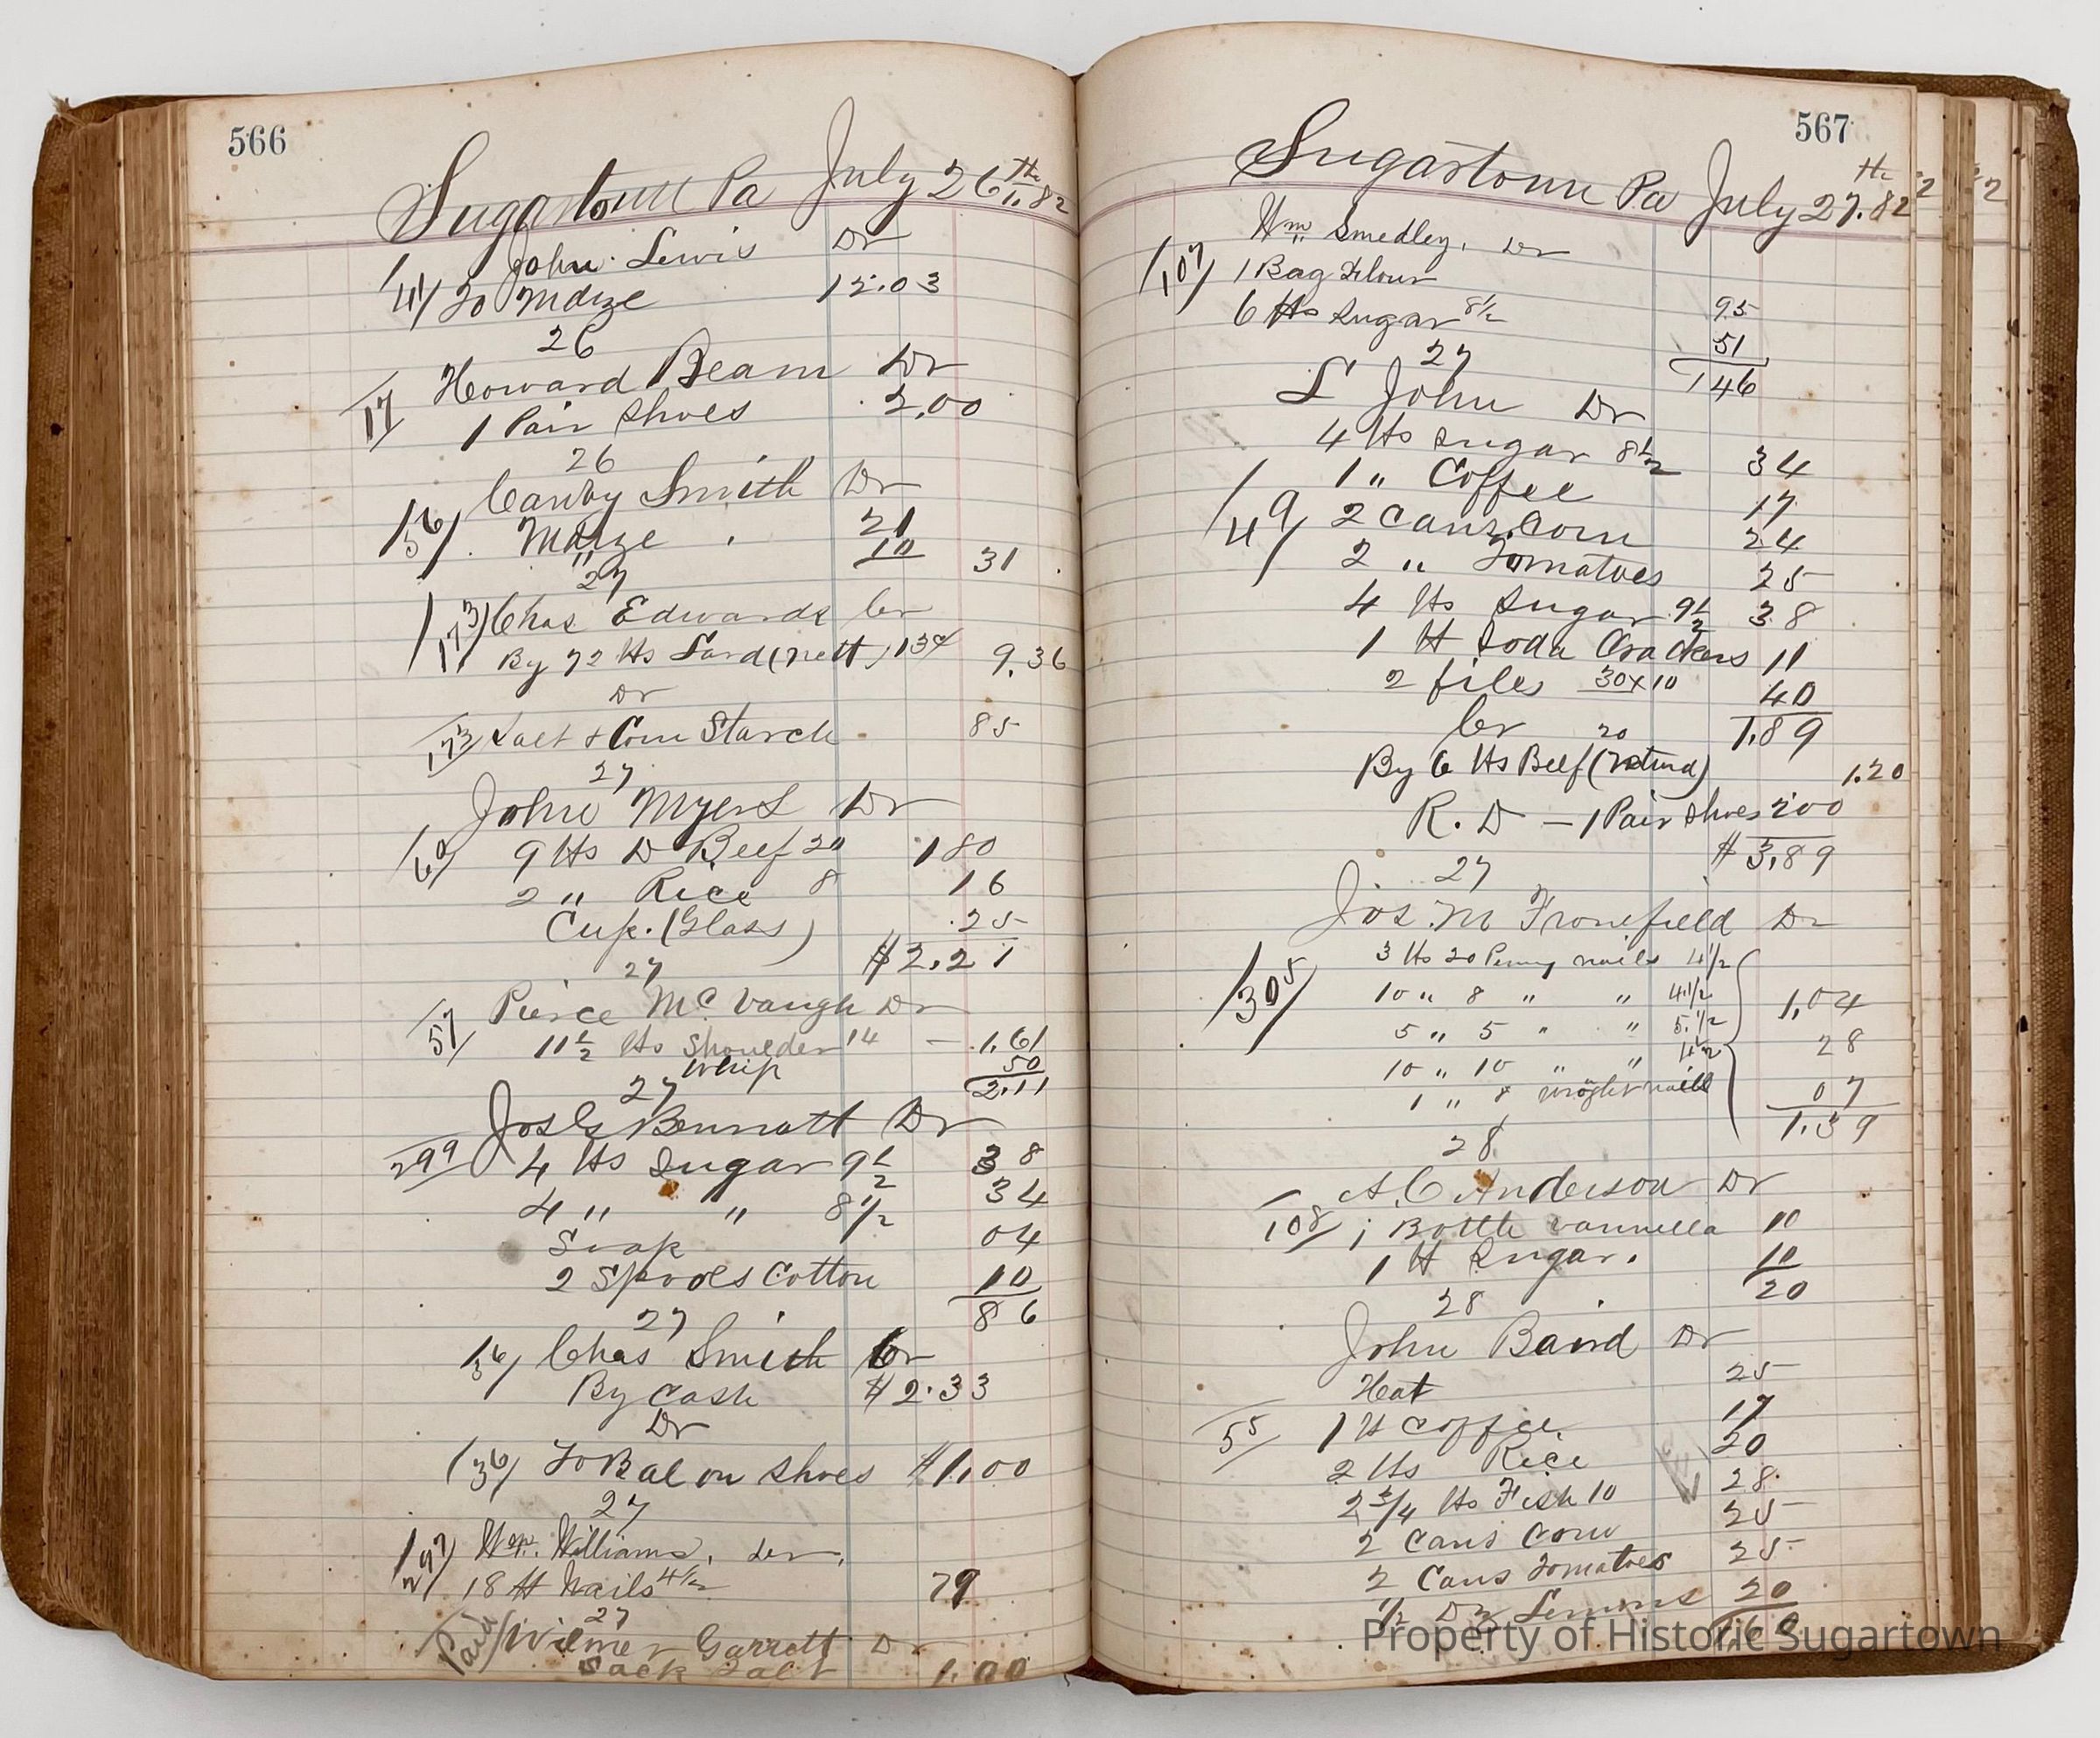 566
Sugartown Pa July 26th, 82
John Lewis Dr
41 To Maize 12.03
26
Howard Beam Dr
17 1 Pair Shoes 2.00
26
Canby Smith Dr
56 Maize 21
" 10 31
27
173 Chas Edwards Cr
By 72 lbs Lard (nett) 13¢ 9.36
Dr
173 Salt & Corn Starch 85
27
John Myers Dr
60 9 lbs D Beef 20 1 80
2 " Rice 8 16
Cup. (Glass) .25
$2.21
27
Pierce Mc Vaugh Dr
57 11 1/2 lbs Shoulder 14 — 1.61
Whip 50
2.11
27
Jos G Bennatt Dr
299 4 lbs Sugar 9 1/2 38
4 " " 8 1/2 34
Soap 04
2 Spools Cotton 10
86
27
36 Chas Smith Cr
By Cash $2.33
Dr
36 To Bal on Shoes $1.00
27
297 Wm. Williams, Dr.
18 lb Nails 4 1/2 79
27
Paid Wilmer Garrett Dr
Sack Salt 1.00
567
Sugartown Pa July 27th. 82
Wm Smedley. Dr
107 1 Bag Flour
6 lbs Sugar 8 1/2 95
51
27 146
L John Dr
4 lbs Sugar 8 1/2 34
1 " Coffee 17
49 2 Cans Corn 24
2 " Tomatoes 25
4 lbs Sugar 9 1/2 38
1 lb Soda Crackers 11
2 files 30 x 10 40
Cr 20 1.89
By 6 lbs Beef (returnd) 1.20
R. D — 1 Pair Shoes 2.00
$3.89
27
Jos. M Fronefield Dr
305 3 lbs 20 Penny nails 4 1/2
10 " 8 " " 4 1/2 1,04
5 " 5 " " 5 1/2
10 " 10 " " 4 1/2 28
1 " 8 wroght nails 07
1.39
28
A. C Anderson Dr
108 1 Bottle vannella 10
1 lb Sugar. 10
20
28
John Baird Dr
Hat 25
55 1 lb Coffee 17
2 lbs Rice 20
2 3/4 lbs Fish 10 28
2 Cans Corn 25
2 Cans Tomatoes 25
1/2 Dz Lemons 20
Property of Historic Sugartown